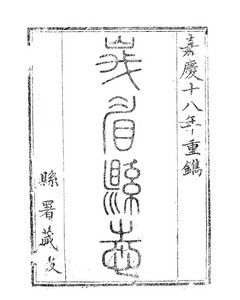 嘉慶十八年重鐫
峩眉縣志
縣署藏